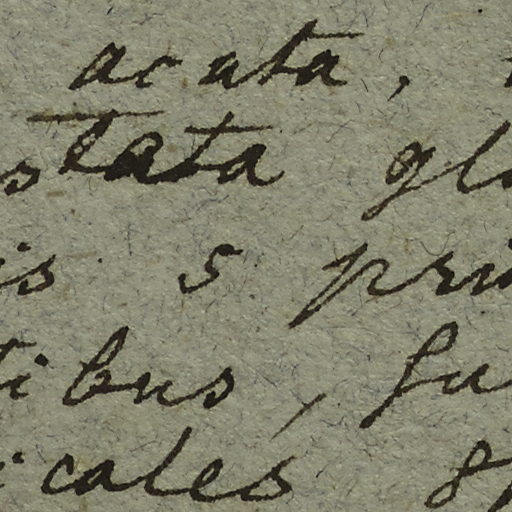 acuta,
stata gl
is 5 pri
tibus, fu
icales